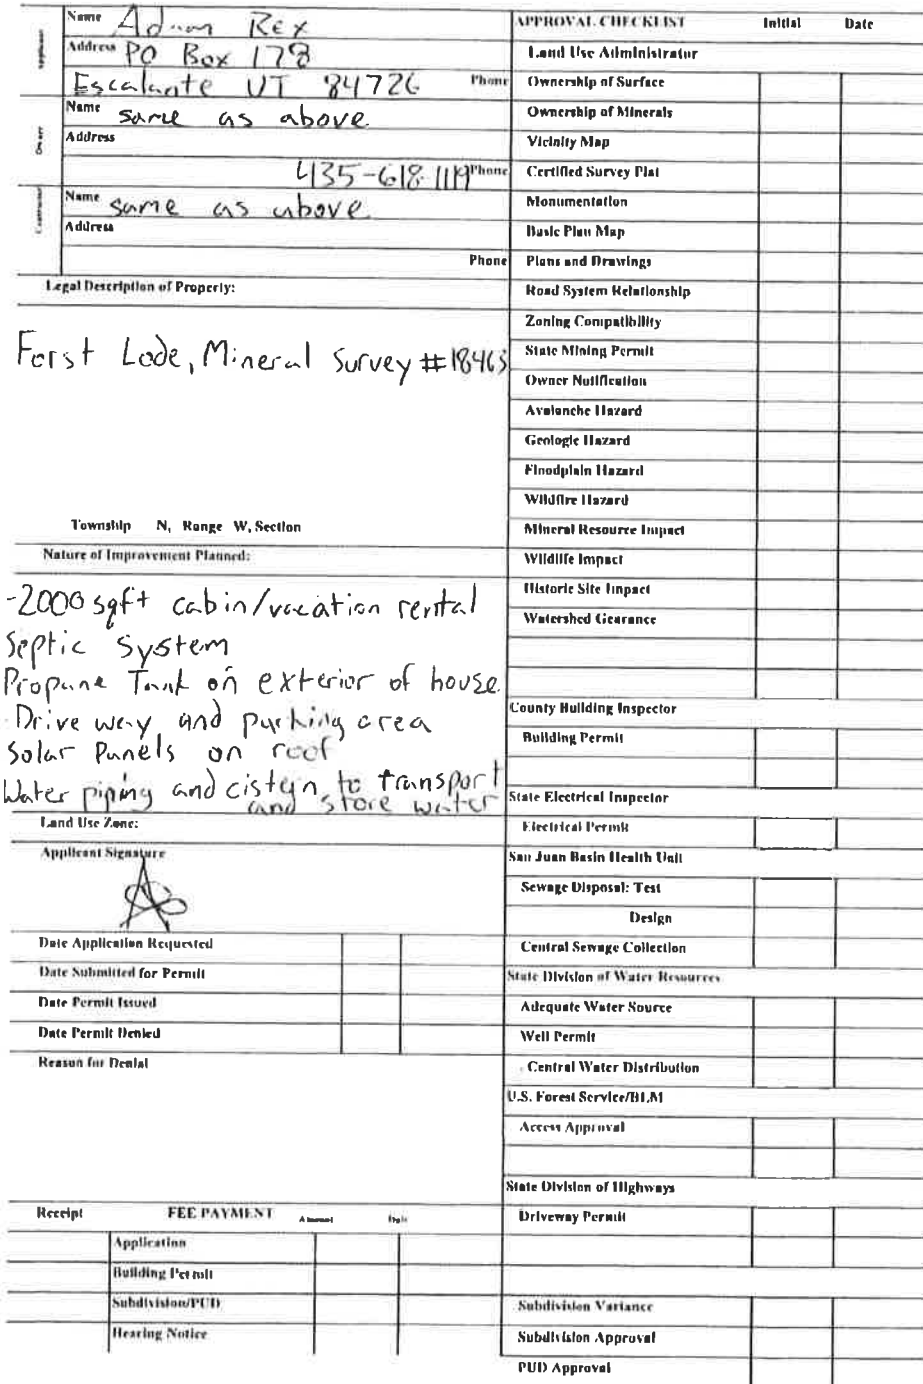 Applicant
Name Adnan Rex
Address PO Box 178
Escalante UT 84726 Phone
Owner
Name same as above
Address
435-618-1119 Phone
Contractor
Name same as above
Address
Phone
Legal Description of Property:
Forst Lode, Mineral Survey #18463
Township N, Range W, Section
Nature of Improvement Planned:
-2000 sqft cabin/vacation rental
Septic System
Propane Tank on exterior of house
Drive way and parking area
Solar Panels on roof
Water piping and cistern, to transport
and store water
Land Use Zone:
Applicant Signature
Date Application Requested
Date Submitted for Permit
Date Permit Issued
Date Permit Denied
Reason for Denial
Receipt FEE PAYMENT Amount Date
Application
Building Permit
Subdivision/PUD
Hearing Notice
APPROVAL CHECKLIST Initial Date
Land Use Administrator
Ownership of Surface
Ownership of Minerals
Vicinity Map
Certified Survey Plat
Monumentation
Basic Plan Map
Plans and Drawings
Road System Relationship
Zoning Compatibility
State Mining Permit
Owner Notification
Avalanche Hazard
Geologic Hazard
Floodplain Hazard
Wildfire Hazard
Mineral Resource Impact
Wildlife Impact
Historic Site Impact
Watershed Gearance
County Building Inspector
Building Permit
State Electrical Inspector
Electrical Permit
San Juan Basin Health Unit
Sewage Disposal: Test
Design
Central Sewage Collection
State Division of Water Resources
Adequate Water Source
Well Permit
Central Water Distribution
U.S. Forest Service/BLM
Access Approval
State Division of Highways
Driveway Permit
Subdivision Variance
Subdivision Approval
PUD Approval